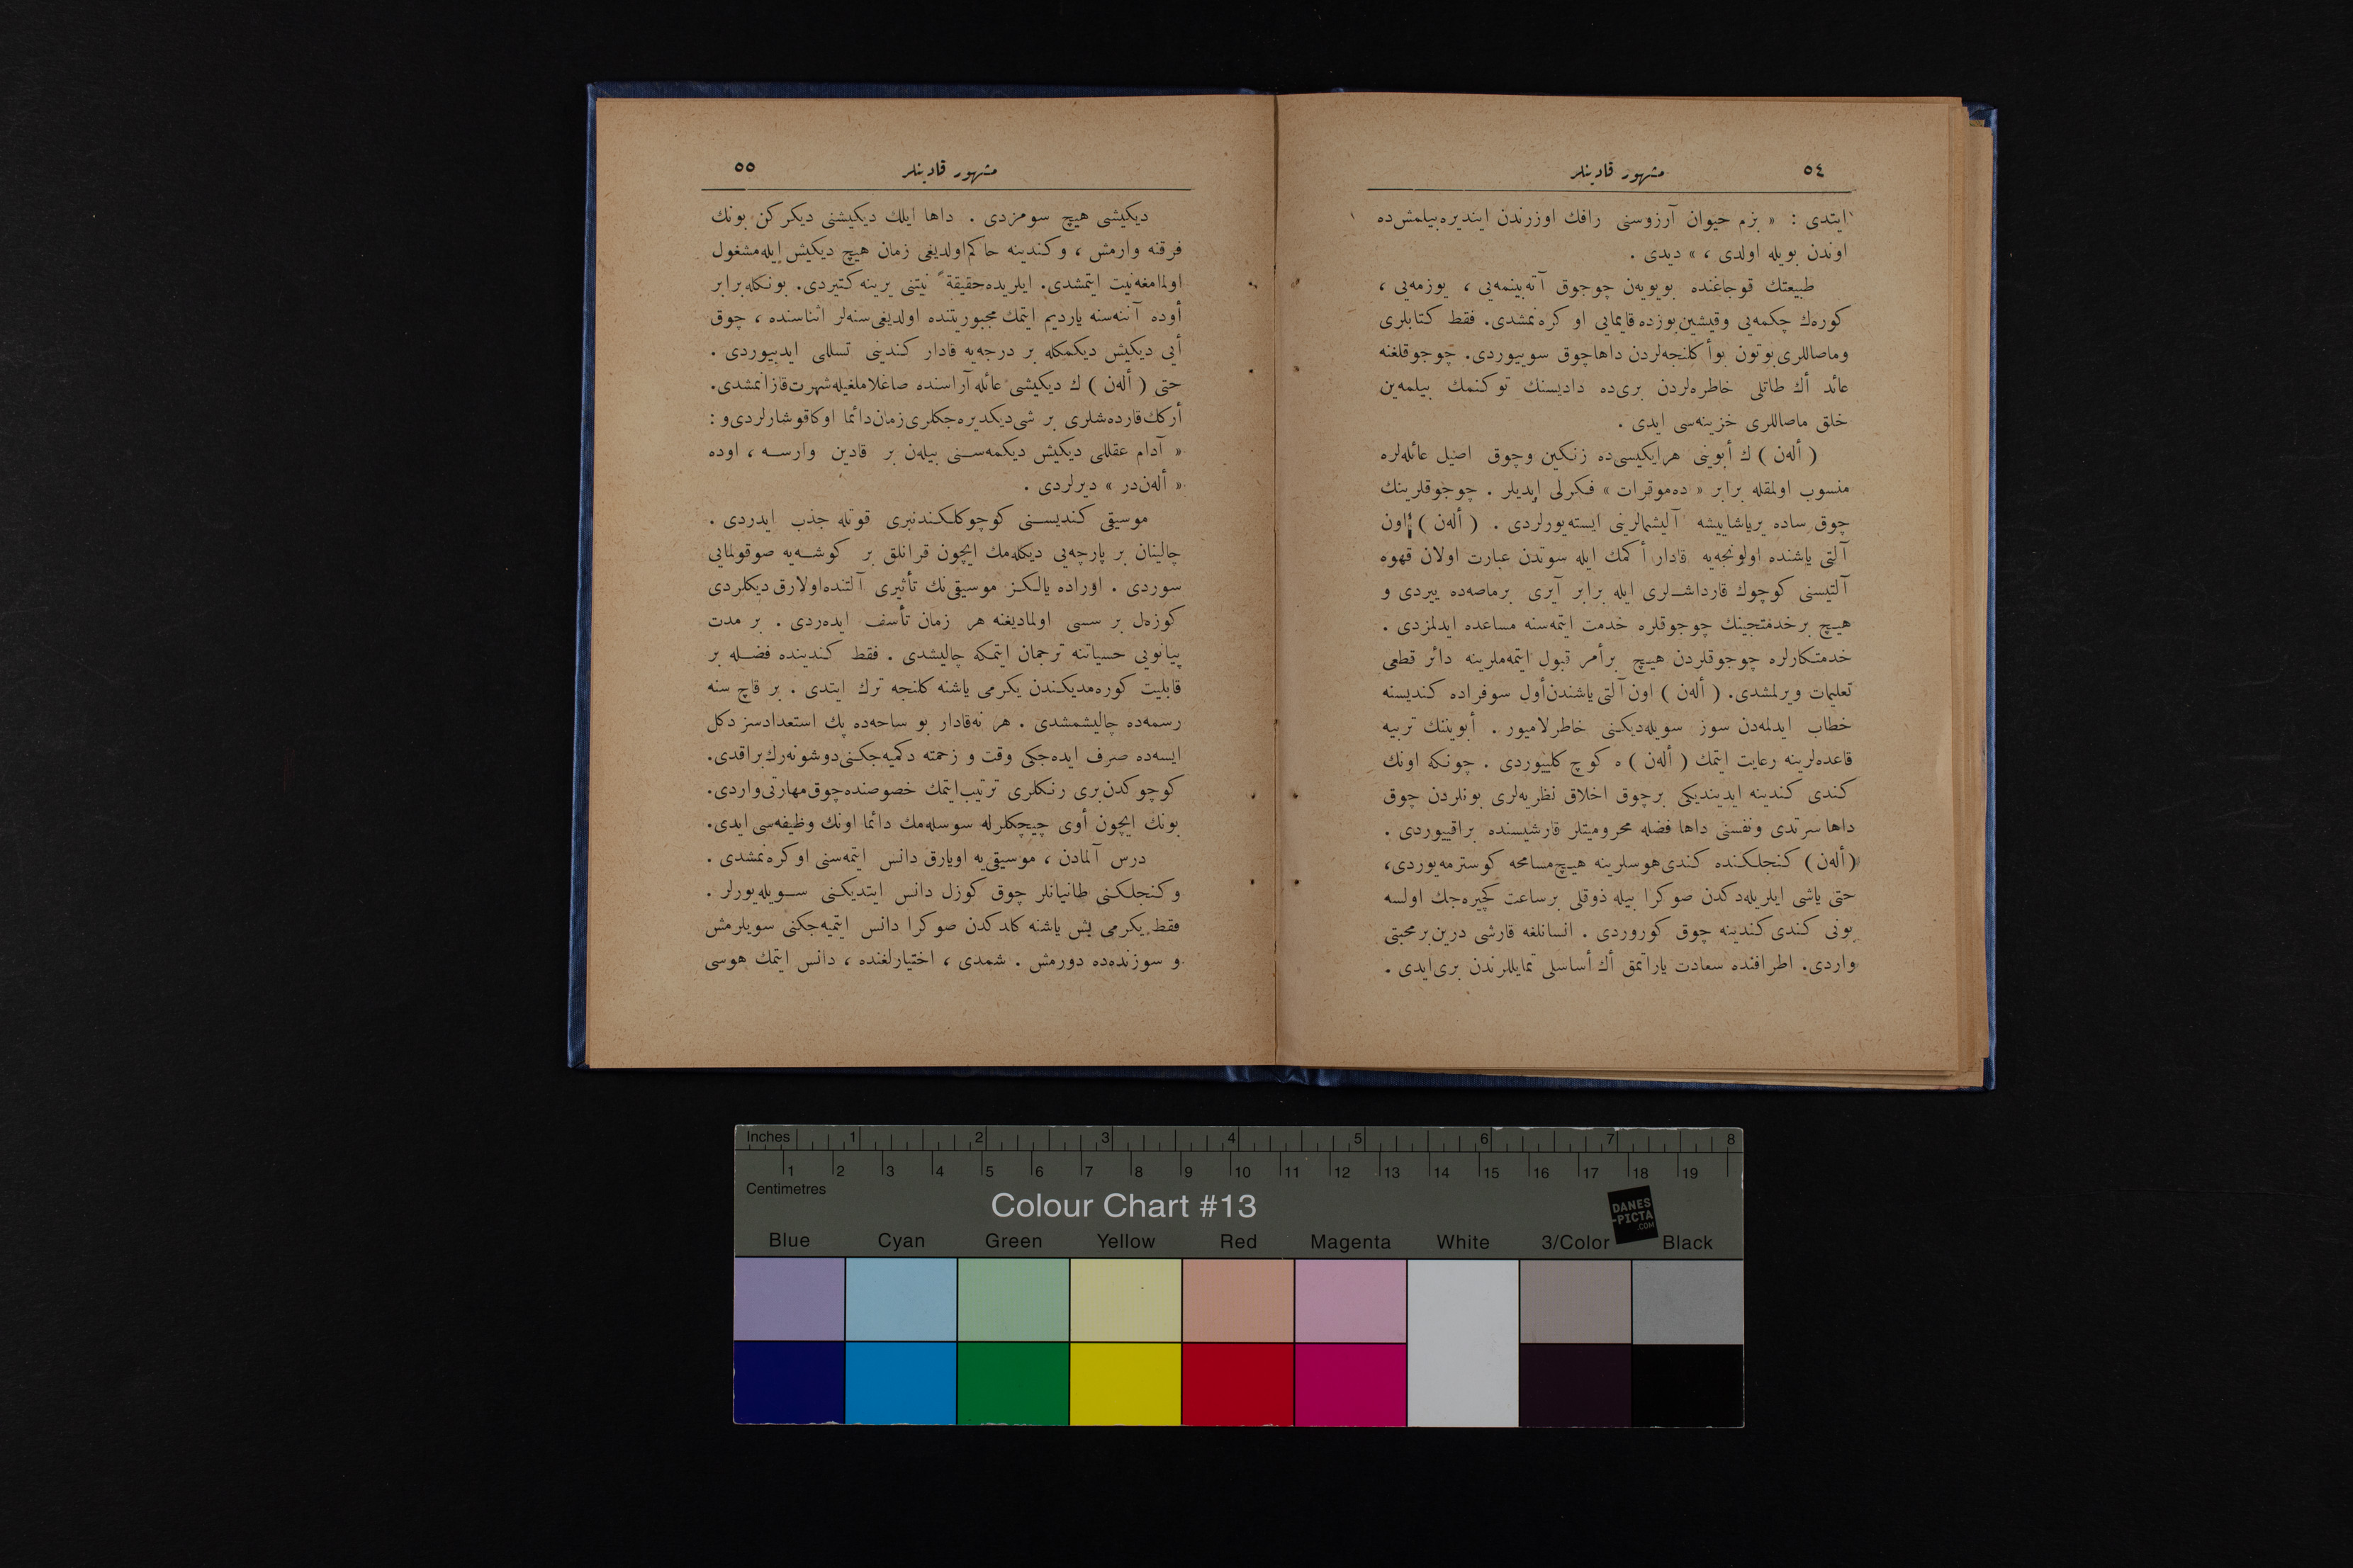 ٥٤
مشهور قادینلر
ایتدی : « بزم حیوان آرزوسنی رافك اوزرندن ایندیره‌بیلمش‌ده
اوندن بویله اولدی ، » دیدی .
طبیعتك قوجاغنده بویویه‌ن چوجوق آته‌بینمه‌یی ، یوزمه‌یی ،
كوره‌ك چكمه‌یی وقیشین‌بوزده قایمایی او كره‌نمشدی. فقط كتابلری
وماصاللری‌بوتون بوأكلنجه‌لردن داهاچوق سوییوردی. چوجوقلغنه
عائد أك طاتلی خاطره‌لردن بری‌ده دادیسنك توكنمك بیلمه‌ین
خلق ماصاللری خزینه‌سی ایدی .
( أله‌ن ) ك أبوینی هرایكیسی‌ده زنكین وچوق اصیل عائله‌لره
منسوب اولمقله برابر « ده‌موقرات » فكرلی ایدیلر . چوجوقلرینك
چوق ساده بریاشاییشه آلیشمالرینی ایسته‌یورلردی . ( أله‌ن ) اون
آلتی یاشنده اولونجه‌یه قادار أكمك ایله سوتدن عبارت اولان قهوه
آلتیسنی كوچوك قارداشـلری ایله برابر آیری برماصه‌ده ییردی و
هیچ برخدمتجینك چوجوقلره خدمت ایتمه‌سنه مساعده ایدلمزدی .
خدمتكارلره چوجوقلردن هیچ برأمر قبول ایتمه‌ملرینه دائر قطعی
تعلیمات ویرلمشدی. ( أله‌ن ) اون آلتی یاشندن‌أول سوفراده كندیسنه
خطاب ایدلمه‌دن سوز سویله‌دیكنی خاطرلامیور . أبویننك تربیه
قاعده‌لرینه رعایت ایتمك ( أله‌ن ) ه كوچ كلییوردی . چونكه اونك
كندی كندینه ایدیندیكی برچوق اخلاق نظریه‌لری بونلردن چوق
داها سرتدی ونفسنی داها فضله محرومیتلر قارشیسنده براقییوردی .
(أله‌ن) كنجلكنده كندی‌هوسلرینه هیچ‌مسامحه كوسترمه‌یوردی،
حتی یاشی ایلریله‌دكدن صوكرا بیله ذوقلی برساعت كچیره‌جك اولسه
بونی كندی كندینه چوق كوروردی . انسانلغه قارشی درین‌برمحبتی
واردی. اطرافنده سعادت یاراتمق أك أساسلی تمایللرندن بری‌ایدی .
٥٥
مشهور قادینلر
دیكیشی هیچ سومزدی . داها ایلك دیكیشنی دیكركن بونك
فرقنه وارمش ، وكندینه حاكم‌اولدیغی زمان هیچ دیكیش ایله‌مشغول
اولمامغه‌نیت ایتمشدی. ایلریده‌حقیقةً نیتنی یرینه كتیردی. بونكله‌برابر
أوده آننه‌سنه یاردیم ایتمك مجبوریتنده اولدیغی‌سنه‌لر اثناسنده ، چوق
أیی دیكیش دیكمكله بر درجه‌یه قادار كندینی تسللی ایدییوردی .
حتی ( أله‌ن ) ك دیكیشی عائله آراسنده صاغلاملغیله‌شهرت‌قازانمشدی.
أركك‌قارده‌شلری بر شی‌دیكدیره‌جكلری‌زمان‌دائما اوكاقوشارلردی‌و :
« آدام عقللی دیكیش دیكمه‌سـنی بیله‌ن بر قادین وارسـه ، اوده
« أله‌ن‌در » دیرلردی .
موسیقی كندیسـنی كوچوكلكندنبری قوتله جذب ایدردی .
چالینان بر پارچه‌یی دیكله‌مك ایچون قرانلق بر كوشـه‌یه صوقولمایی
سوردی . اوراده یالكز موسیقی‌نك تأثیری آلتنده‌اولارق دیكلردی
كوزه‌ل بر سسی اولمادیغنه هر زمان تأسف ایده‌ردی . بر مدت
پیانویی حسیاتنه ترجمان ایتمكه چالیشدی . فقط كندینده فضـله بر
قابلیت كوره‌مدیكندن یكرمی یاشنه كلنجه ترك ایتدی . بر قاچ سنه
رسمه‌ده چالیشمشدی . هر نه‌قادار بو ساحه‌ده پك استعدادسز دكل
ایسه‌ده صرف ایده‌جكی وقت و زحمته دكمیه‌جكنی‌دوشونه‌رك‌براقدی.
كوچوكدن‌بری رنكلری ترتیب‌ایتمك خصوصنده‌چوق‌مهارتی‌واردی.
بونك ایچون أوی چیچكلرله سوسله‌مك دائما اونك وظیفه‌سی ایدی.
درس آلمادن ، موسیقی‌یه اویارق دانس ایتمه‌سنی اوكره‌نمشدی .
وكنجلكنی طانیانلر چوق كوزل دانس ایتدیكنی سـویله‌یورلر .
فقط یكرمی بش یاشنه كلدكدن صوكرا دانس ایتمیه‌جكنی سویلرمش
و سوزنده‌ده دورمش . شمدی ، اختیارلغنده ، دانس ایتمك هوسی
Inches 1 2 3 4 5 6 7 8
1 2 3 4 5 6 7 8 9 10 11 12 13 14 15 16 17 18 19
Centimetres
Colour Chart #13
DANES
-PICTA
.COM
Blue Cyan Green Yellow Red Magenta White 3/Color Black